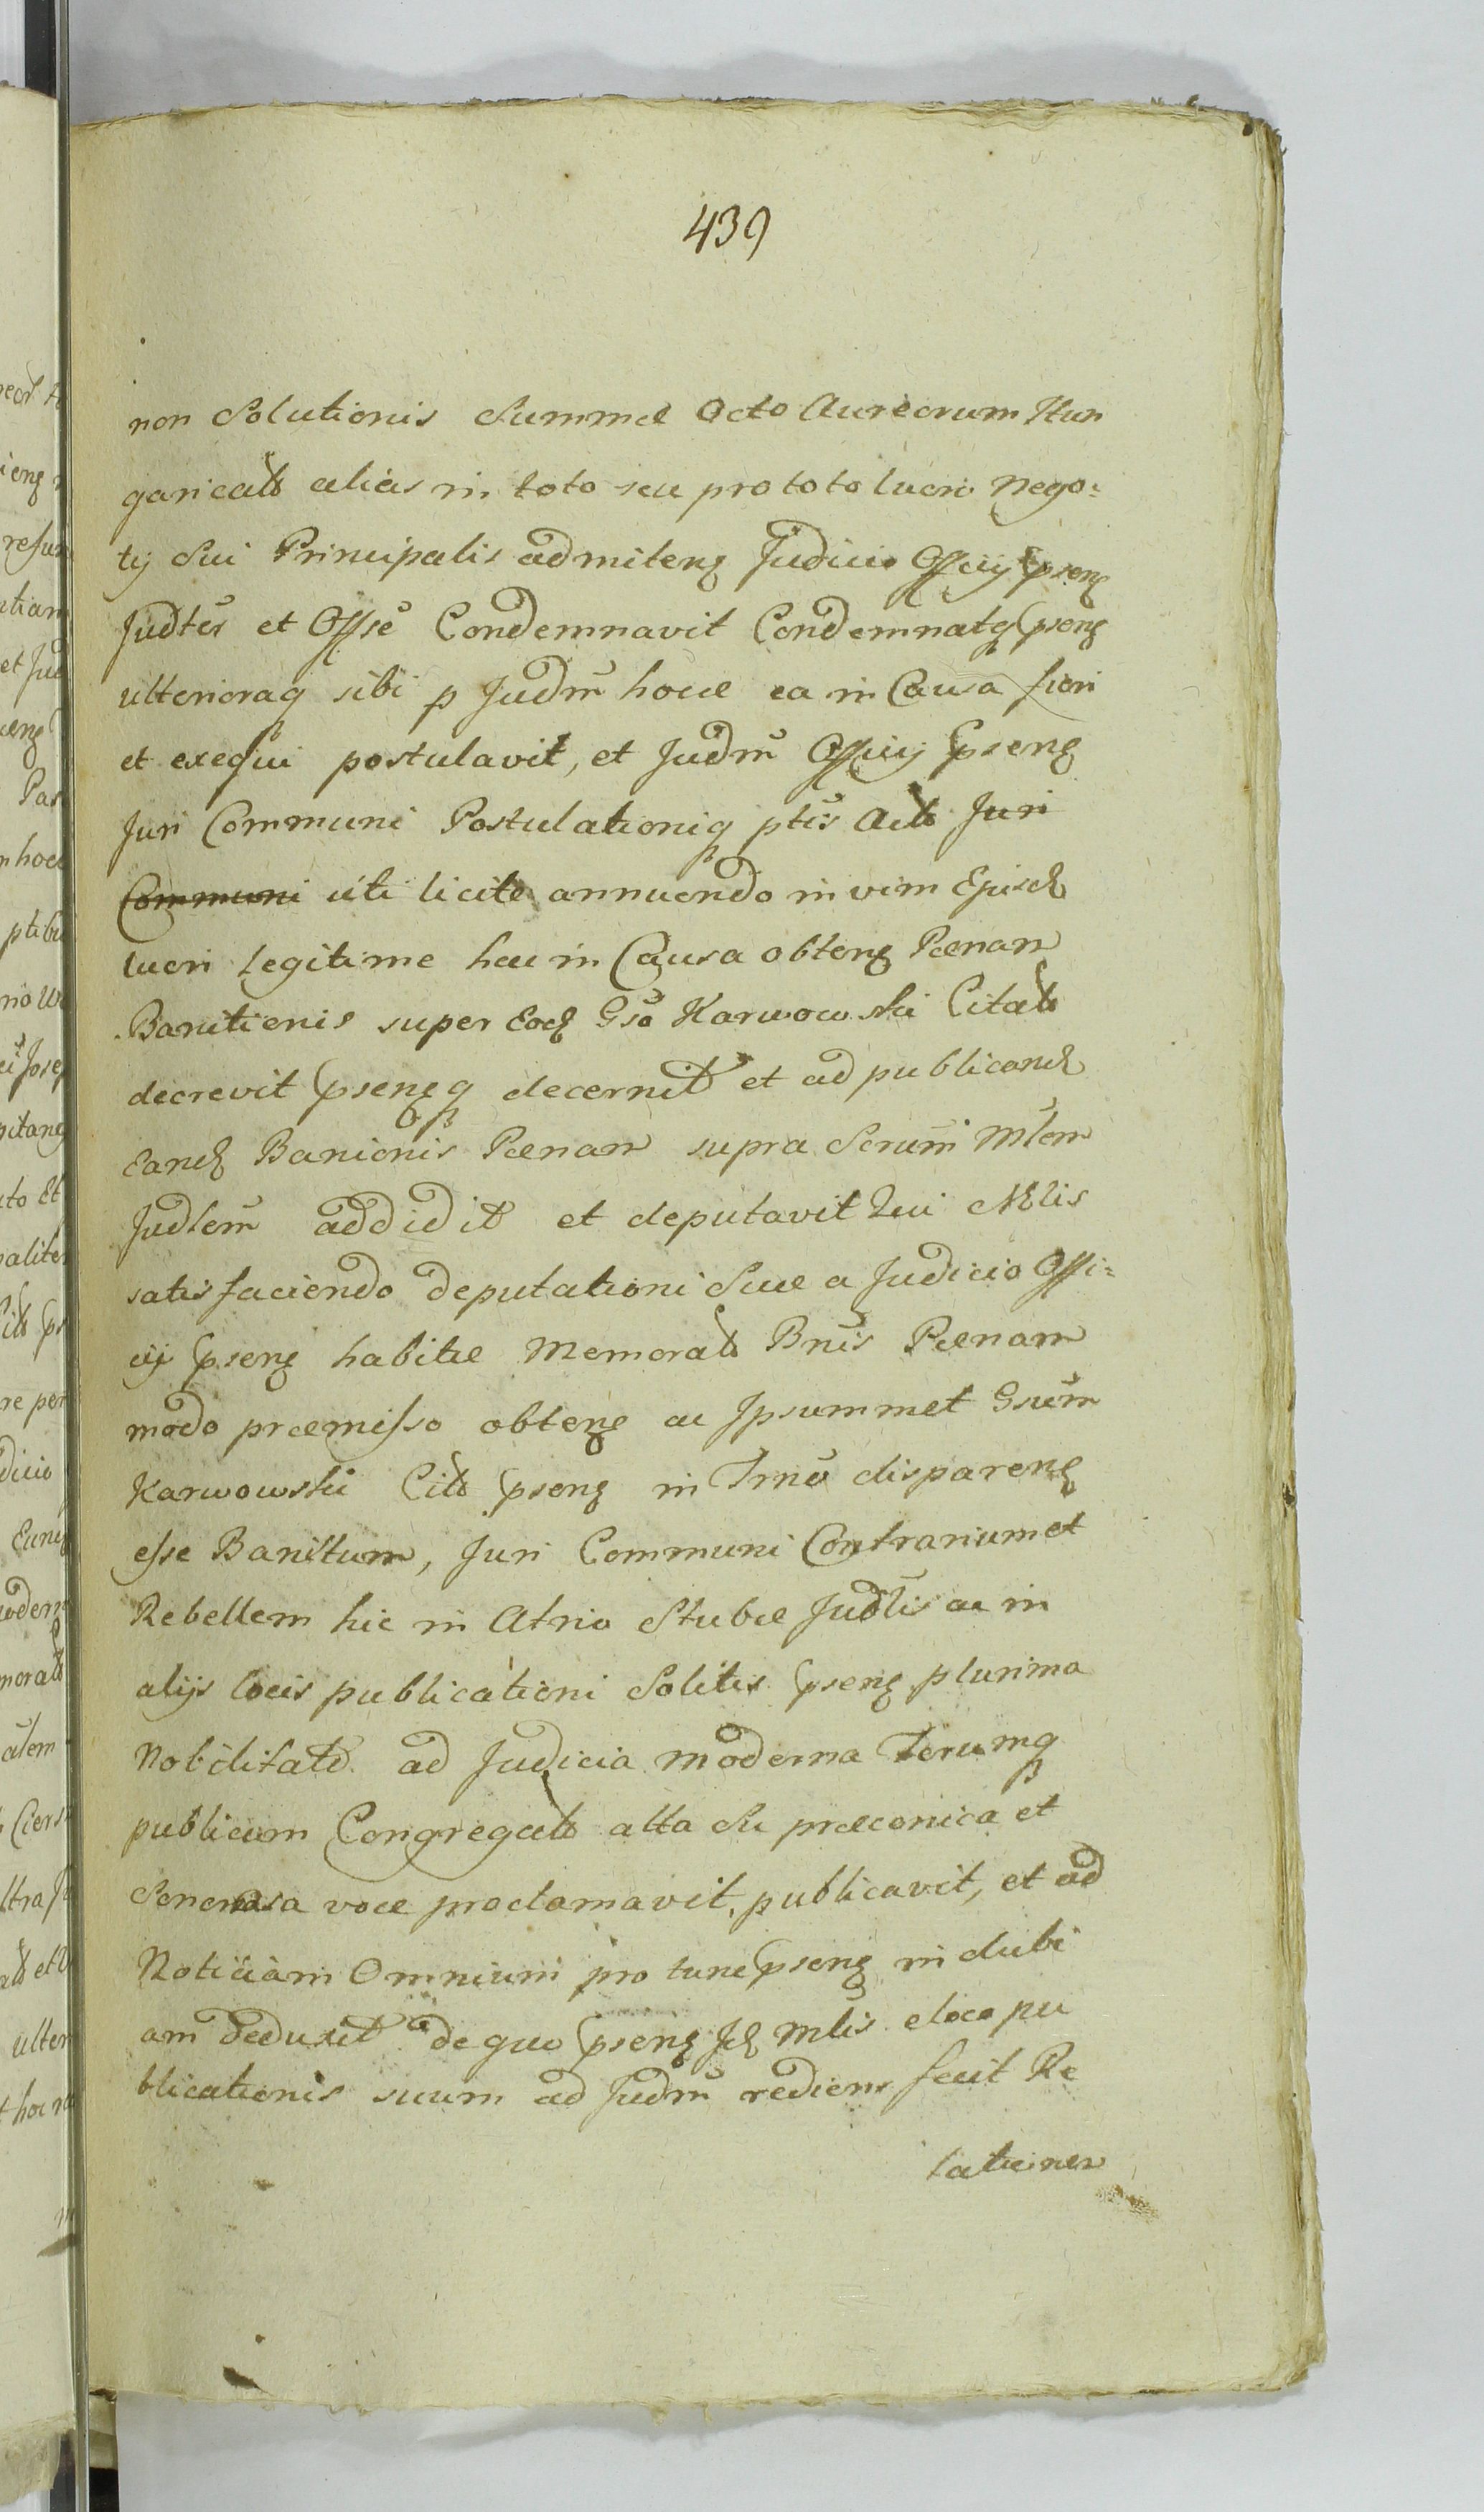 439
non Solutionis Summæ Octo Aureorum Hun
garicalb alias in toto seu pro toto lucri nego:
tij Sui Principalis admiteng Judicio Officij Pseng
Judtēr et Offsē Condemnavit Condemnatq Pseng
ulterioraq sibi p Judm̄ hocce ea in Causa fieri
et exequi postulavit, et Judm̄ Officij Pseng
Juri Communi Postulationiq ptis Actb Juri
Communi uti licite annuendo in vim Ejusd
lucri legitime hac in Causa obteng Pænam
Banitionis super Eod Gso Karwowski Citatb
decrevit Psengq decernit et ad publicand
Eand Banionis Pænam supra Scrum̄ Mlem
Judlem̄ addidit et deputavit Qui Mlis
satisfaciendo deputationi Suæ a Judicio Offi:
cij Pseng habitæ Memoratb Bnis Pænam
modo præmisso obteng ac Ipsummet Gsum̄
Karwowski Citb Pseng in Trno dispareng
esse Banitum, Juri Communi Contrarium et
Rebellem hic in Atrio Stubæ Judlis ac in
alijs locis publicationi Solitis Pseng plurima
Nobilitate ad Judicia moderna Forumq
publicum Congregatb alta Su præconica et
Sonorosa voce proclamavit, publicavit, et ad
Noticiam Omnium pro tunc Pseng indubi
am deduxit de quo Pseng Jd Mlis e loco pu
blicationis suum ad Judm̄ rediens fecit Re
lationem